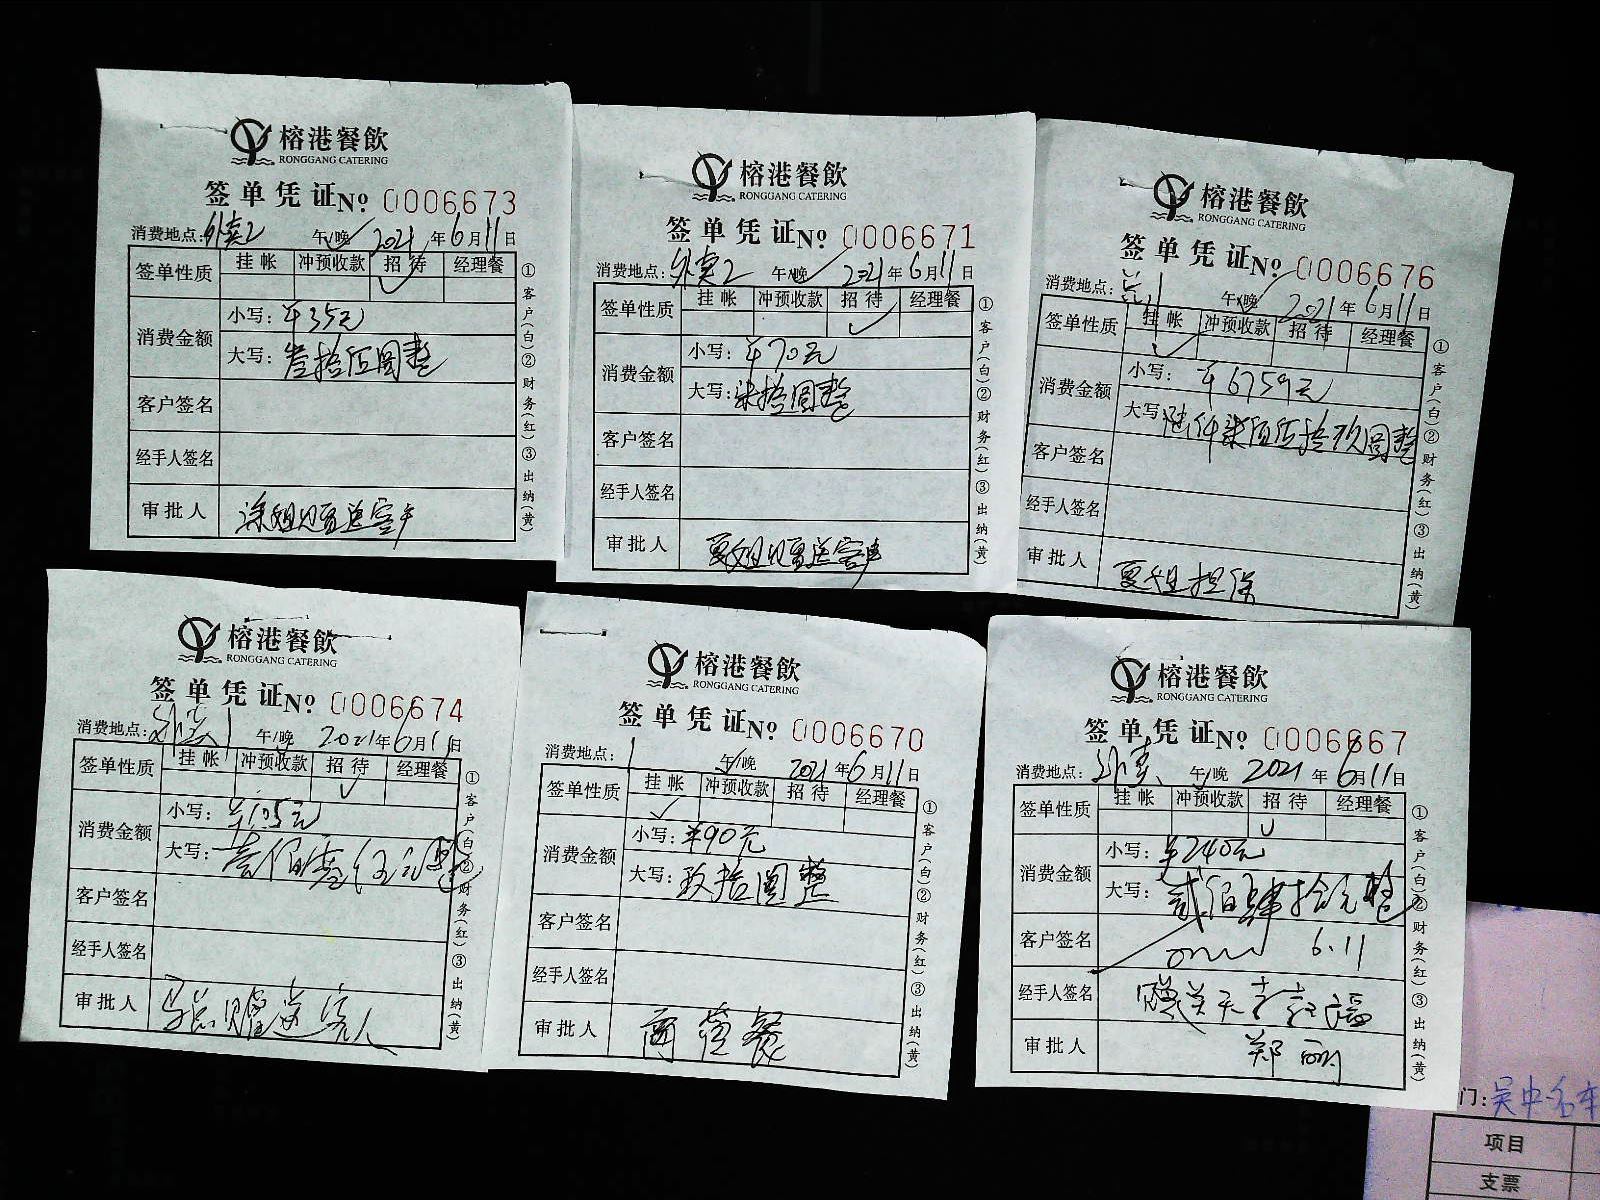 榕港餐飲
RONGGANG CATERING
签单凭证№ 0006673
消费地点:外卖2 午/晚 2021年6月11日
签单性质 挂帐 冲预收款 招待 经理餐
消费金额
小写:¥35元
大写:叁拾伍圆整
客户签名
经手人签名
审批人 涂姐赠送客户
①客户(白)②财务(红)③出纳(黄)
榕港餐飲
RONGGANG CATERING
签单凭证№ 0006671
消费地点:外卖2 午/晚 2021年6月11日
签单性质 挂帐 冲预收款 招待 经理餐
消费金额
小写:¥70元
大写:柒拾圆整
客户签名
经手人签名
审批人 夏姐赠送客户
①客户(白)②财务(红)③出纳(黄)
榕港餐飲
RONGGANG CATERING
签单凭证№ 0006676
消费地点: 午/晚 2021年6月11日
签单性质 挂帐 冲预收款 招待 经理餐
消费金额
小写:¥6759元
大写:陆仟柒佰伍拾玖圆整
客户签名
经手人签名
审批人 夏姐担保
①客户(白)②财务(红)③出纳(黄)
榕港餐飲
RONGGANG CATERING
签单凭证№ 0006674
消费地点: 午/晚 2021年6月11日
签单性质 挂帐 冲预收款 招待 经理餐
消费金额
小写:¥105元
大写:壹佰零伍元圆整
客户签名
经手人签名
审批人 赠送客人
①客户(白)②财务(红)③出纳(黄)
榕港餐飲
RONGGANG CATERING
签单凭证№ 0006670
消费地点:1 午/晚 2021年6月11日
签单性质 挂帐 冲预收款 招待 经理餐
消费金额
小写:¥90元
大写:玖拾圆整
客户签名
经手人签名
审批人 商管餐
①客户(白)②财务(红)③出纳(黄)
榕港餐飲
RONGGANG CATERING
签单凭证№ 0006667
消费地点:外卖 午/晚 2021年6月11日
签单性质 挂帐 冲预收款 招待 经理餐
消费金额
小写:¥240元
大写:贰佰肆拾元整
客户签名 6.11
经手人签名 赠送
审批人 郑丽
①客户(白)②财务(红)③出纳(黄)
门:吴中名车
项目
支票